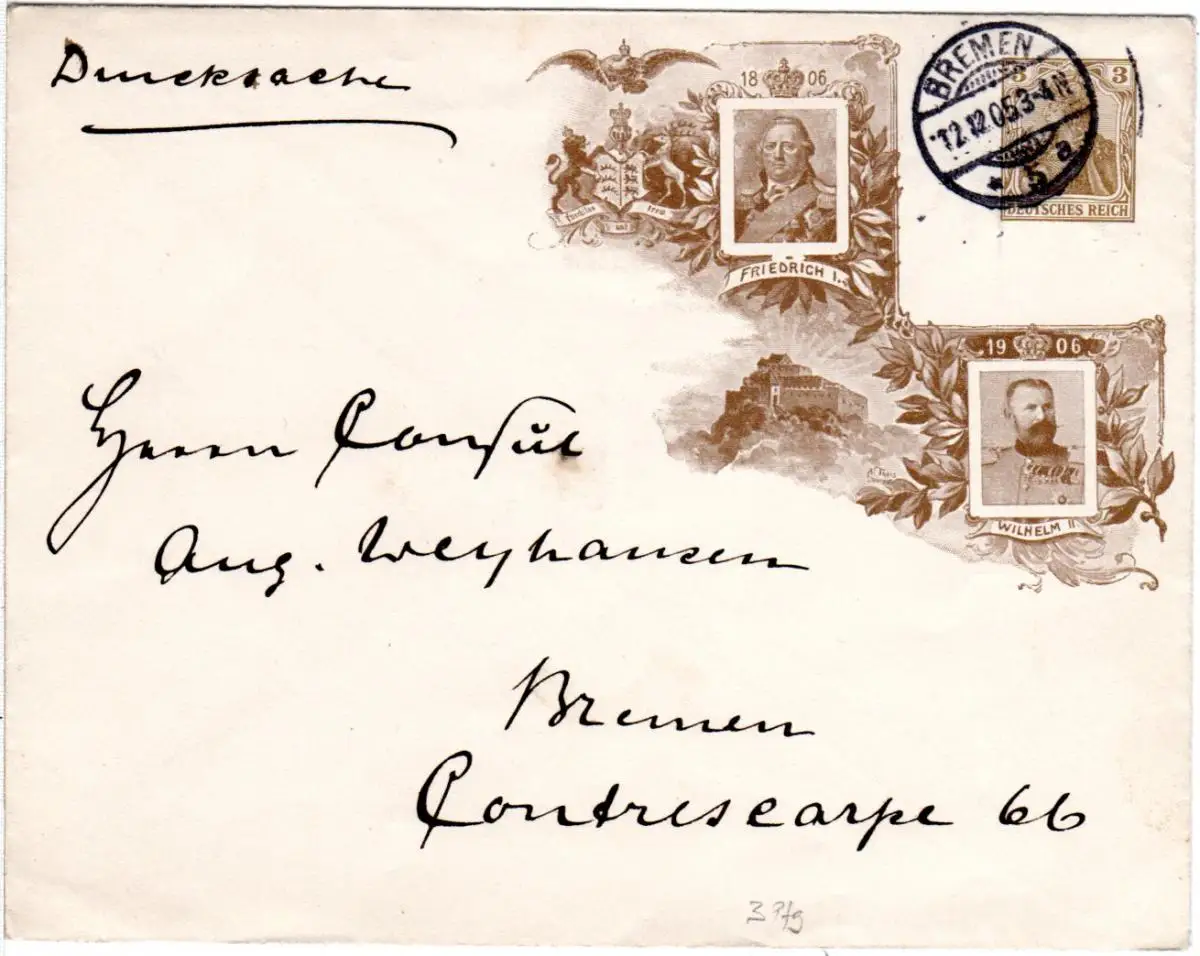 Drucksache
1806
FRIEDRICH I.
furchtlos
und
treu
BREMEN
12.12.05.3-4N
* 5 a
3 3
DEUTSCHES REICH
1906
WILHELM II
Herrn Consul
Aug. Weyhausen
Bremen
Contrescarpe 66
3 Pfg